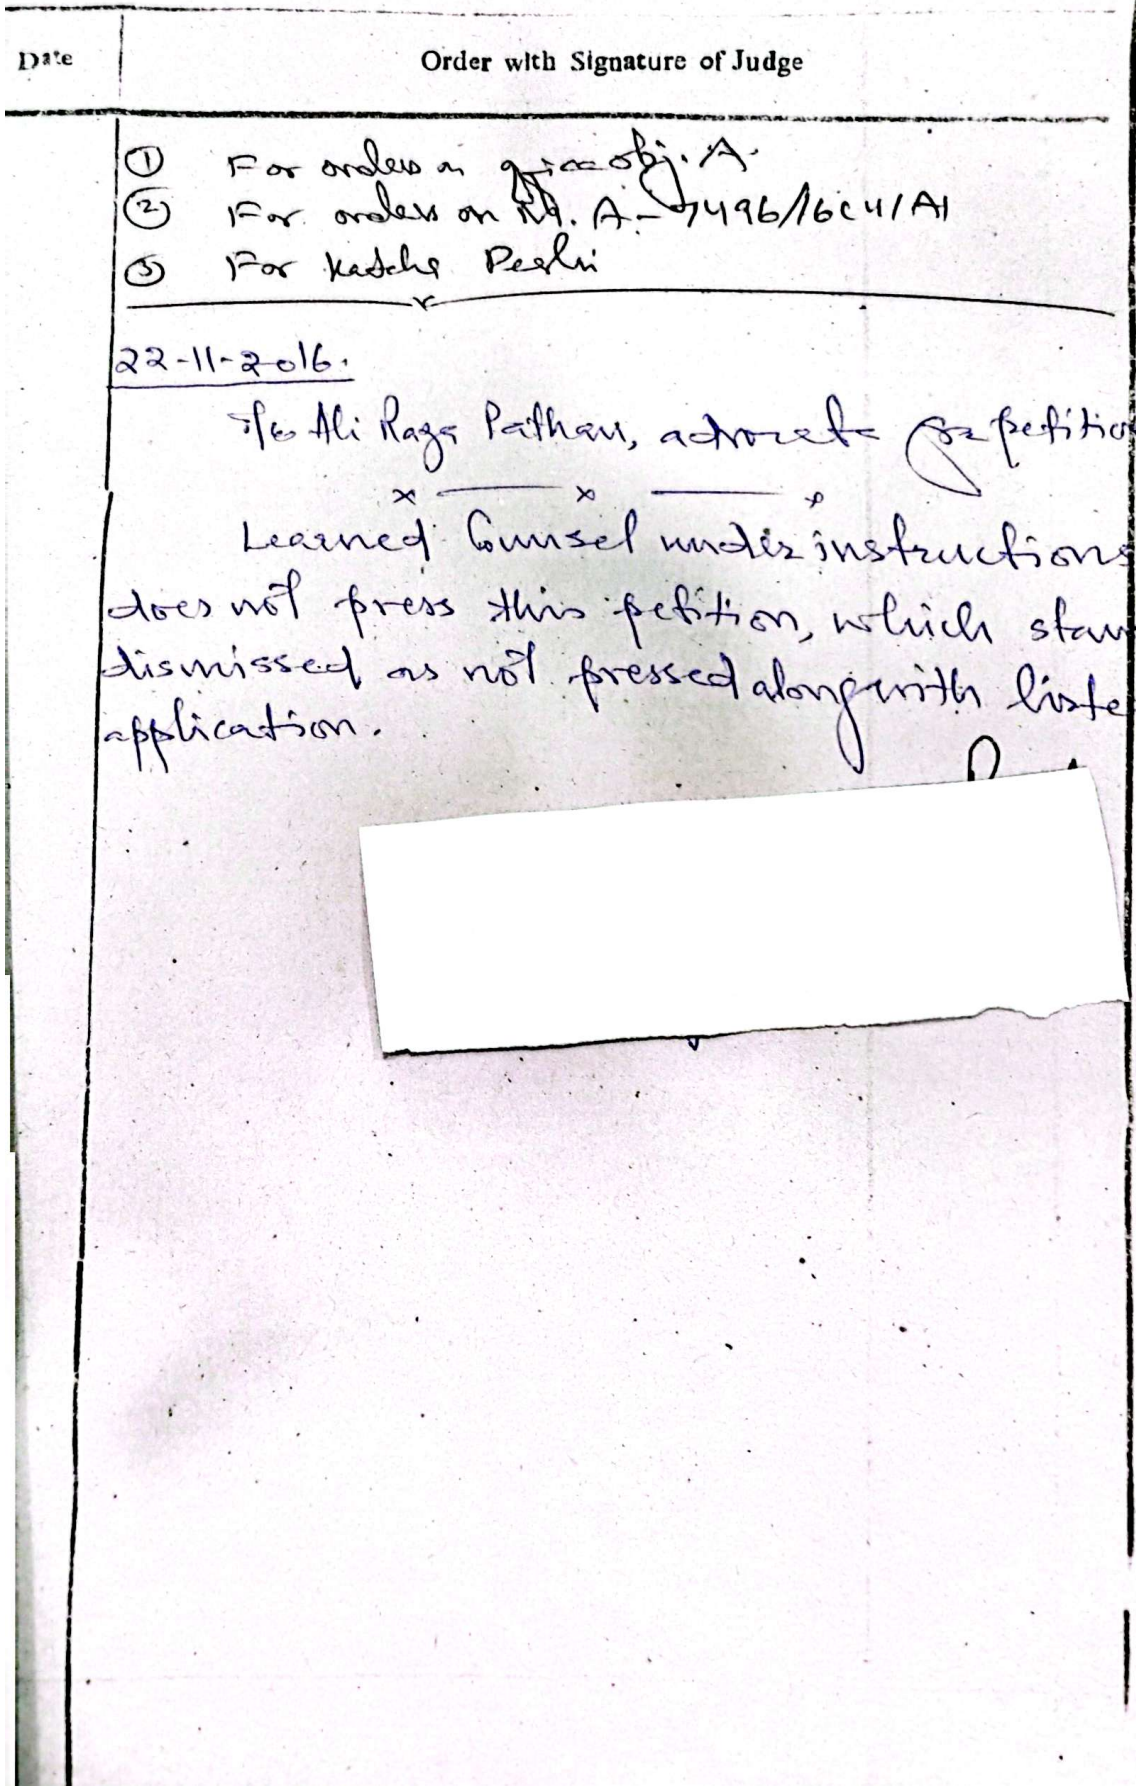 Date Order with Signature of Judge
① For orders on office obj. A.
② For orders on M. A- 7496/16 C41A1
③ For Katcha Peshi
22-11-2016.
Ali Raza Pathan, advocate for petitio
Learned Counsel under instructions
does not press this petition, which stan
dismissed as not pressed alongwith liste
application.